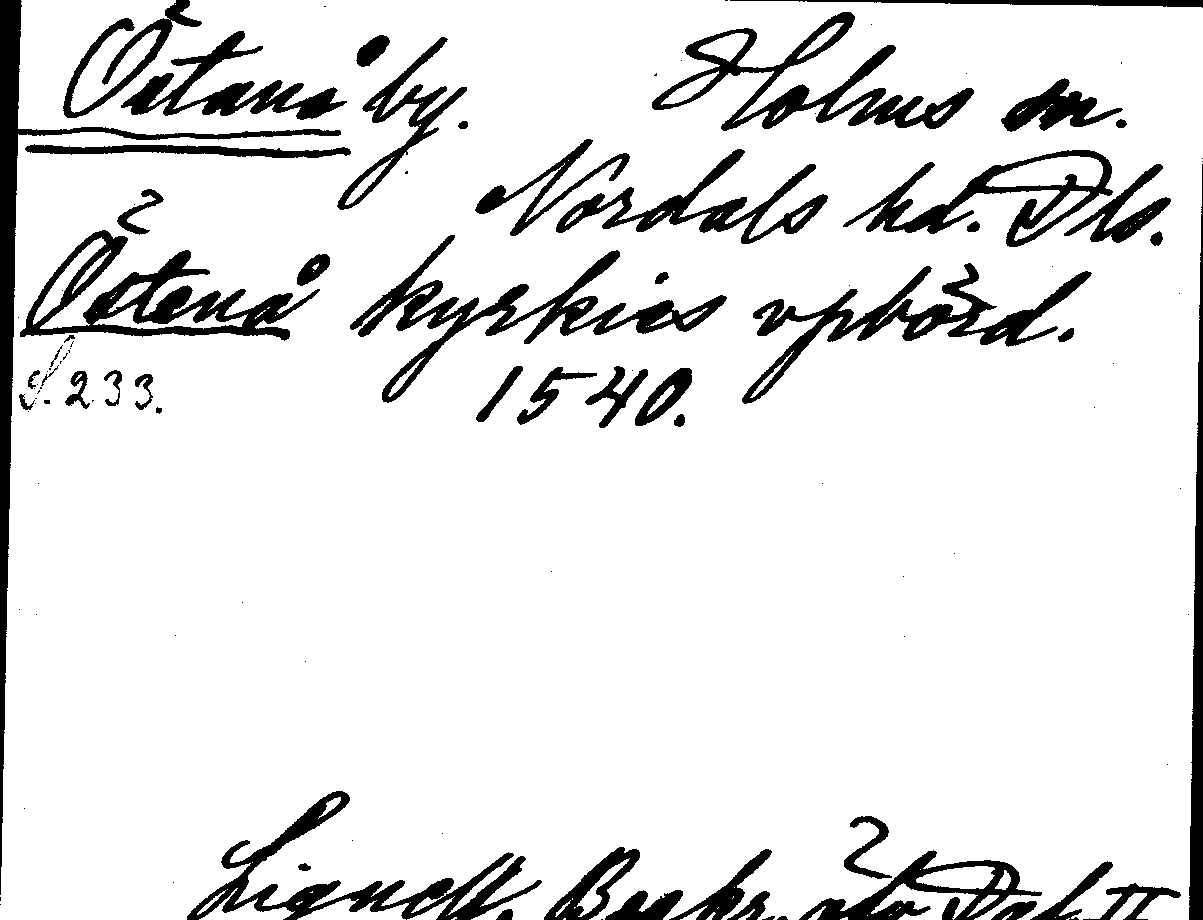 Östanå by. Holms sn.
Nordals hd. Dls.
Östenå kyrkies vpbörd.
S. 233. 1540.
Lignell, Beskr. öfv. Dal. II